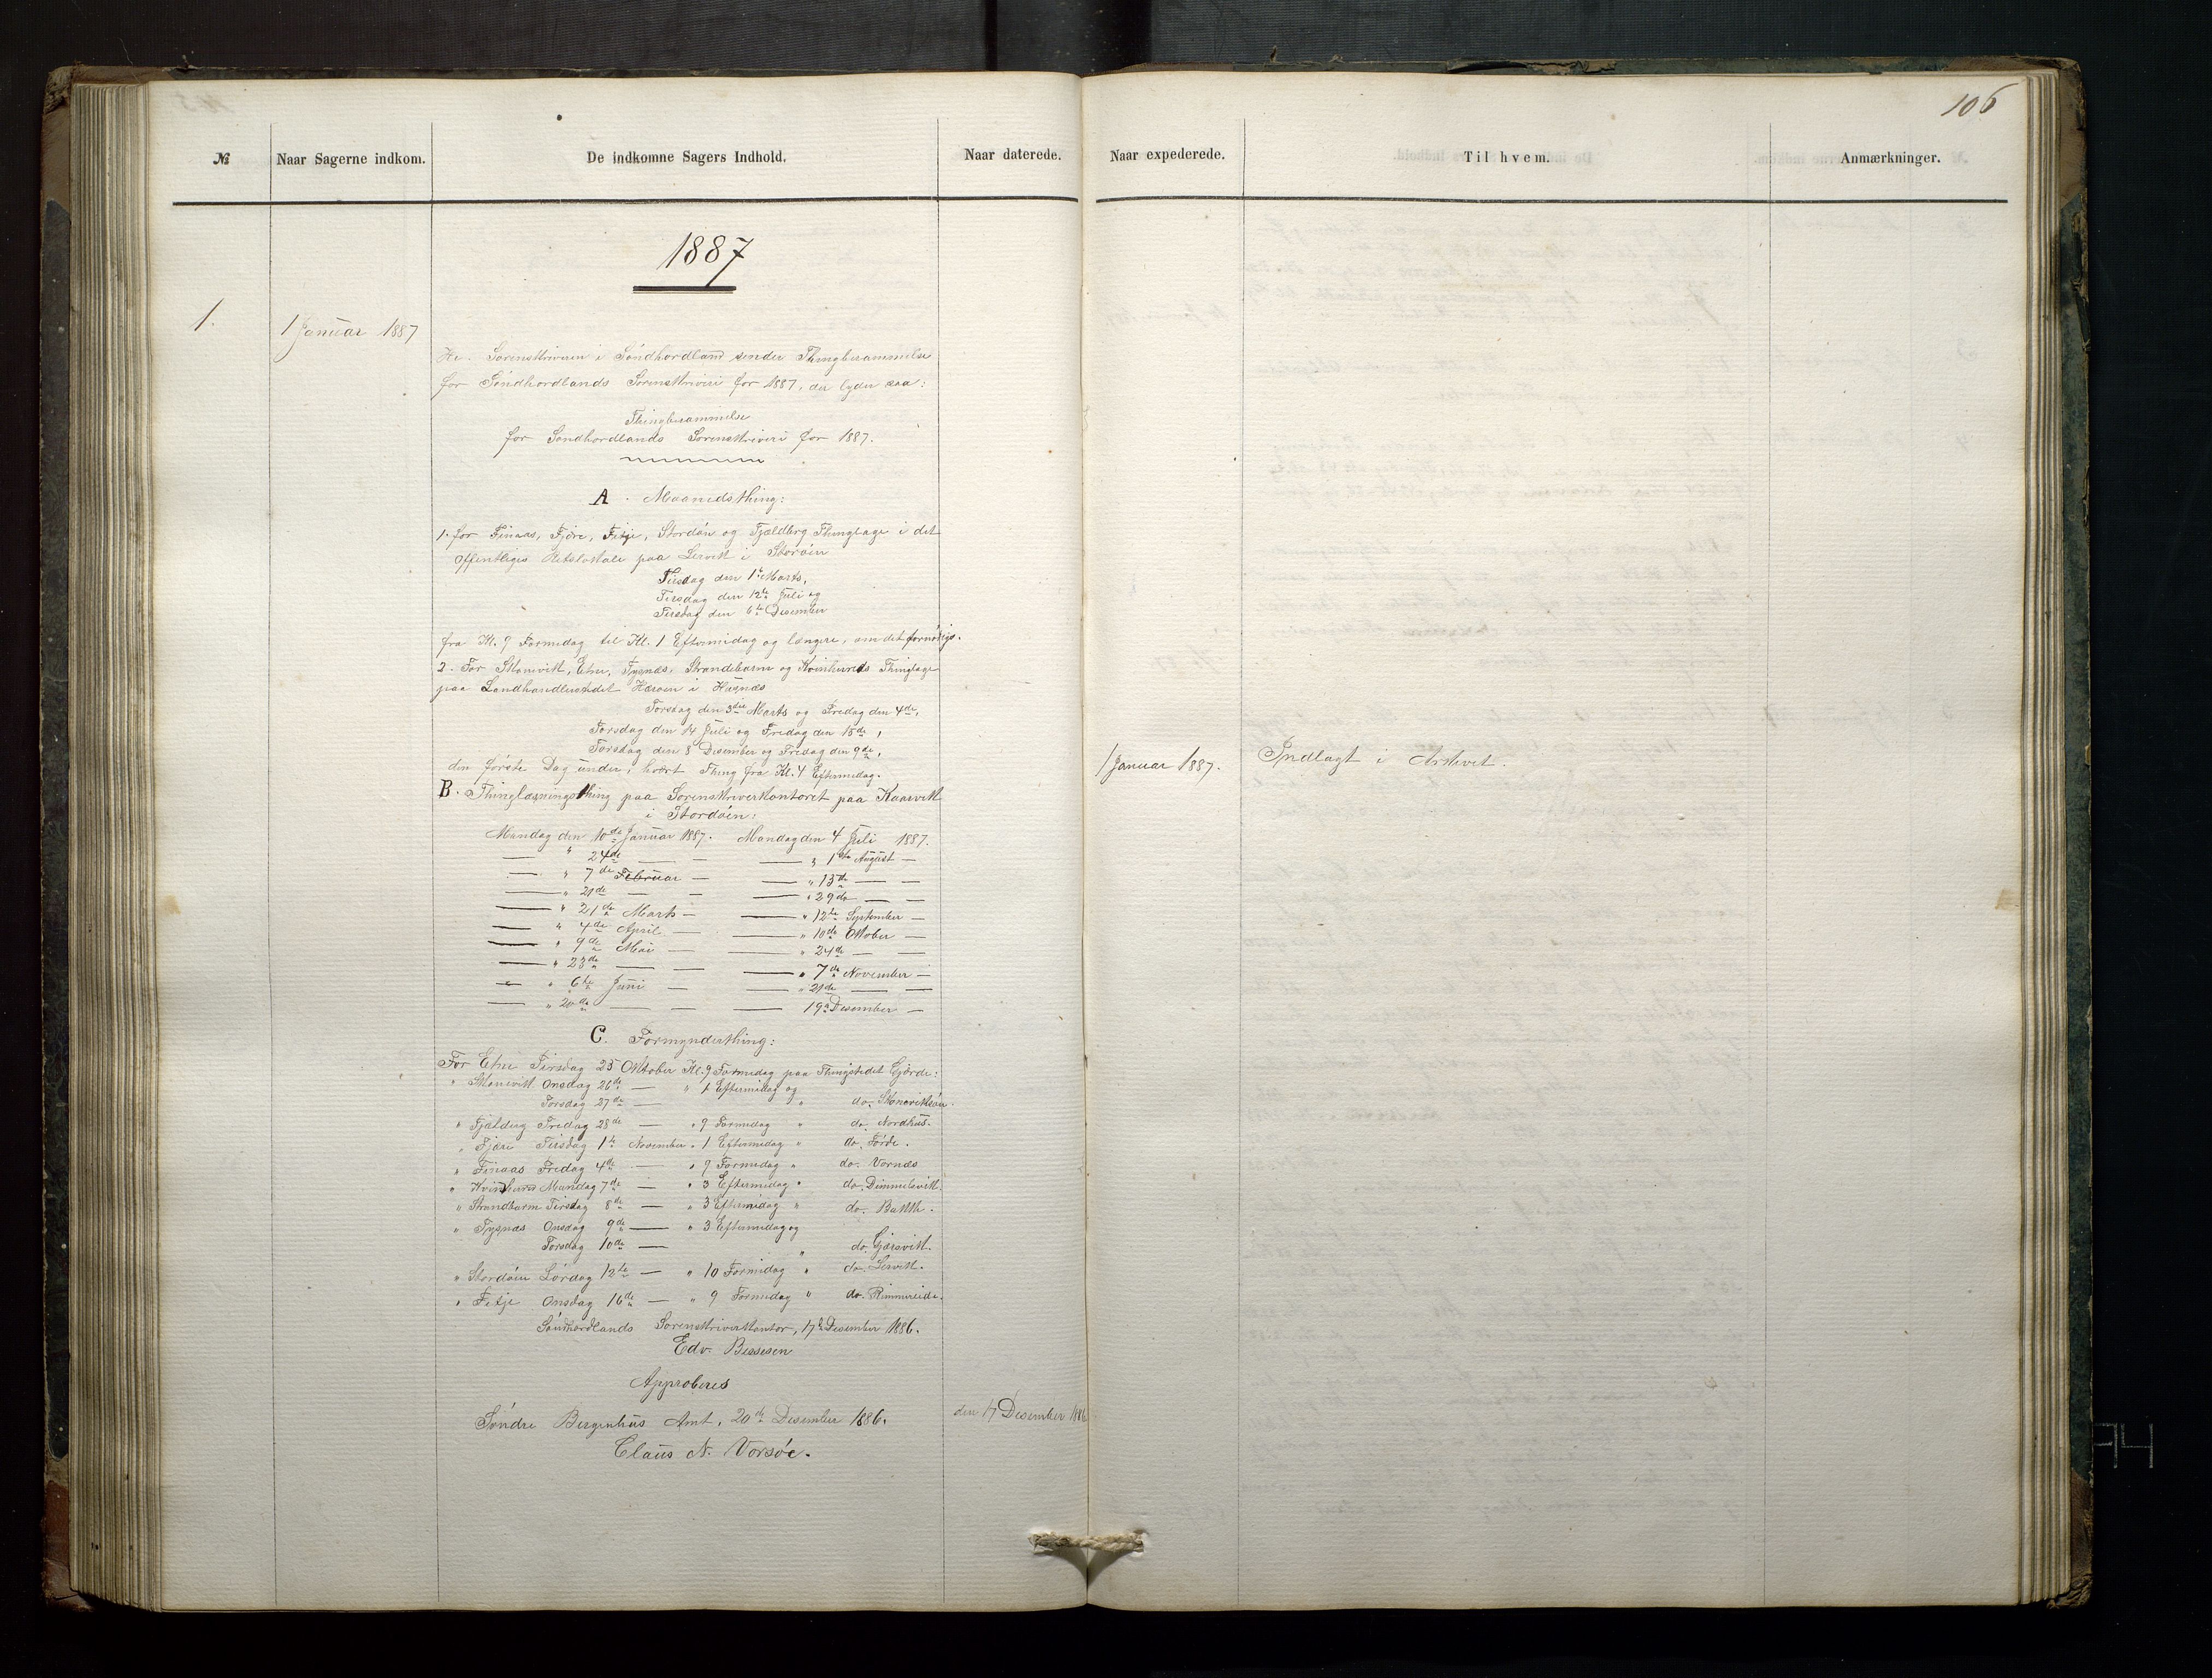 106
№ Naar Sagerne indkom. De indkomne Sagers Indhold. Naar daterede. Naar expederede. Til hvem. Anmærkninger.
1887
1. 1 Januar 1887
Hr. Sorenskriveren i Söndhordland sender Thingberammelse
for Söndhordlands Sorenskriveri for 1887, der lyder saa:
Thingberammelse
for Söndhordlands Sorenskriveri for 1887.
A. Maanedsthing:
1. for Finaas, Fjöre, Fitje, Stordöen og Fjeldberg Thinglage i det
Offentliges Retslokale paa Lervik i Storöen
Tirsdag den 1te Marts,
Tirsdag den 12te Juli og
Tirsdag den 6te Desember
fra Kl. 9 Formidag til Kl. 1 Eftermidag og længere, om det fornödiges.
2. For Skonevik, Etne, Tysnæs, Strandebarm og Kvinherreds Thinglage
paa Landhandlerstedet Hæröen i Husnæs
Torsdag den 3die Marts og Fredag den 4de,
Torsdag den 14 Juli og Fredag den 15de,
Torsdag den 8 Desember og Fredag den 9de,
den förste Dag under hvert Thing fra Kl. 4 Eftermidag.
1 Januar 1887. Indlagt i Arkivet.
B. Thinglæsningsthing paa Sorenskriverkontoret paa Kaarvik
i Stordöen:
Mandag den 10de Januar 1887. Mandag den 4 Juli 1887.
— " 24de — — — " 1ste August —
— " 7de Februar — — " 15de — —
— " 21de — — — " 29de — —
— " 21de Marts — — " 12te September —
— " 4de April — — " 10de Oktober —
— " 9de Mai — — " 24de — —
— " 23de — — — " 7de November —
— " 6te Juni — — " 21de — —
— " 20de — — — 19de Desember —
C. Formynderthing:
For Etne Tirsdag 25 Oktober Kl. 9 Formidag paa Thingstedet Gjerde:
" Skonevik Onsdag 26de — " 1 Eftermidag og
Torsdag 27de — " do. Skoneviksöen.
" Fjelderg Fredag 28de — " 9 Formidag " do. Nordhus.
" Fjære Tirsdag 1te November " 1 Eftermidag " do. Förde.
" Finaas Fredag 4de — " 9 Formidag " do. Vornæs
" Kvinherred Mandag 7de — " 3 Eftermidag " do. Dimmelsvik.
" Strandbarm Tirsdag 8de — " 3 Eftermidag " do. Bakke.
" Tysnæs Onsdag 9de — " 3 Eftermidag og
Torsdag 10de — " do. Gjersvik.
" Stordöen Lördag 12te — " 10 Formidag " do. Lervik.
" Fitje Onsdag 16de — " 9 Formidag " do. Rimmereide.
Söndhordlands Sorenskriverkontor, 17de Desember 1886.
Edv. Bessesen
Approberes
Söndre Bergenhus Amt, 20de Desember 1886. den 17 Desember 1886
Claus N. Vorsöe.